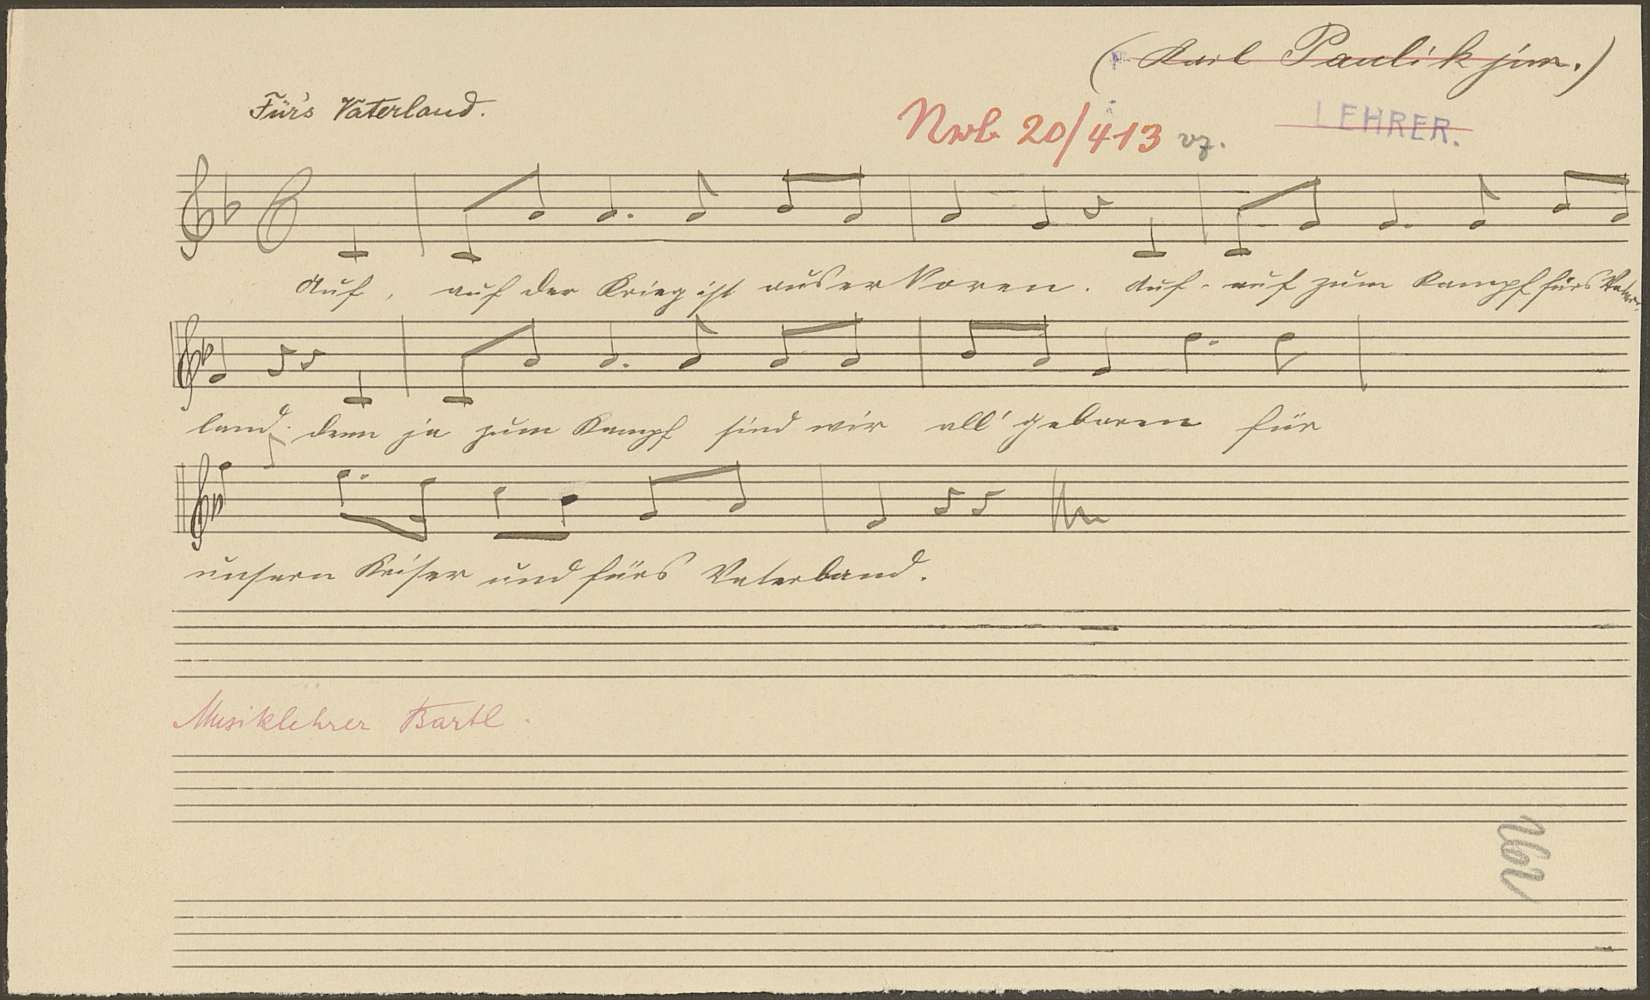 (Karl Paulik jun.)
Für's Vaterland.
Nrb 20/413 vz.
LEHRER.
Auf, auf der Krieg ist auserkoren. Auf, auf zum Kampf fürs Vater-
land. denn ja zum Kampf sind wir all' geboren für
unsern Keiser und fürs Vaterland.
Musiklehrer Bartl.